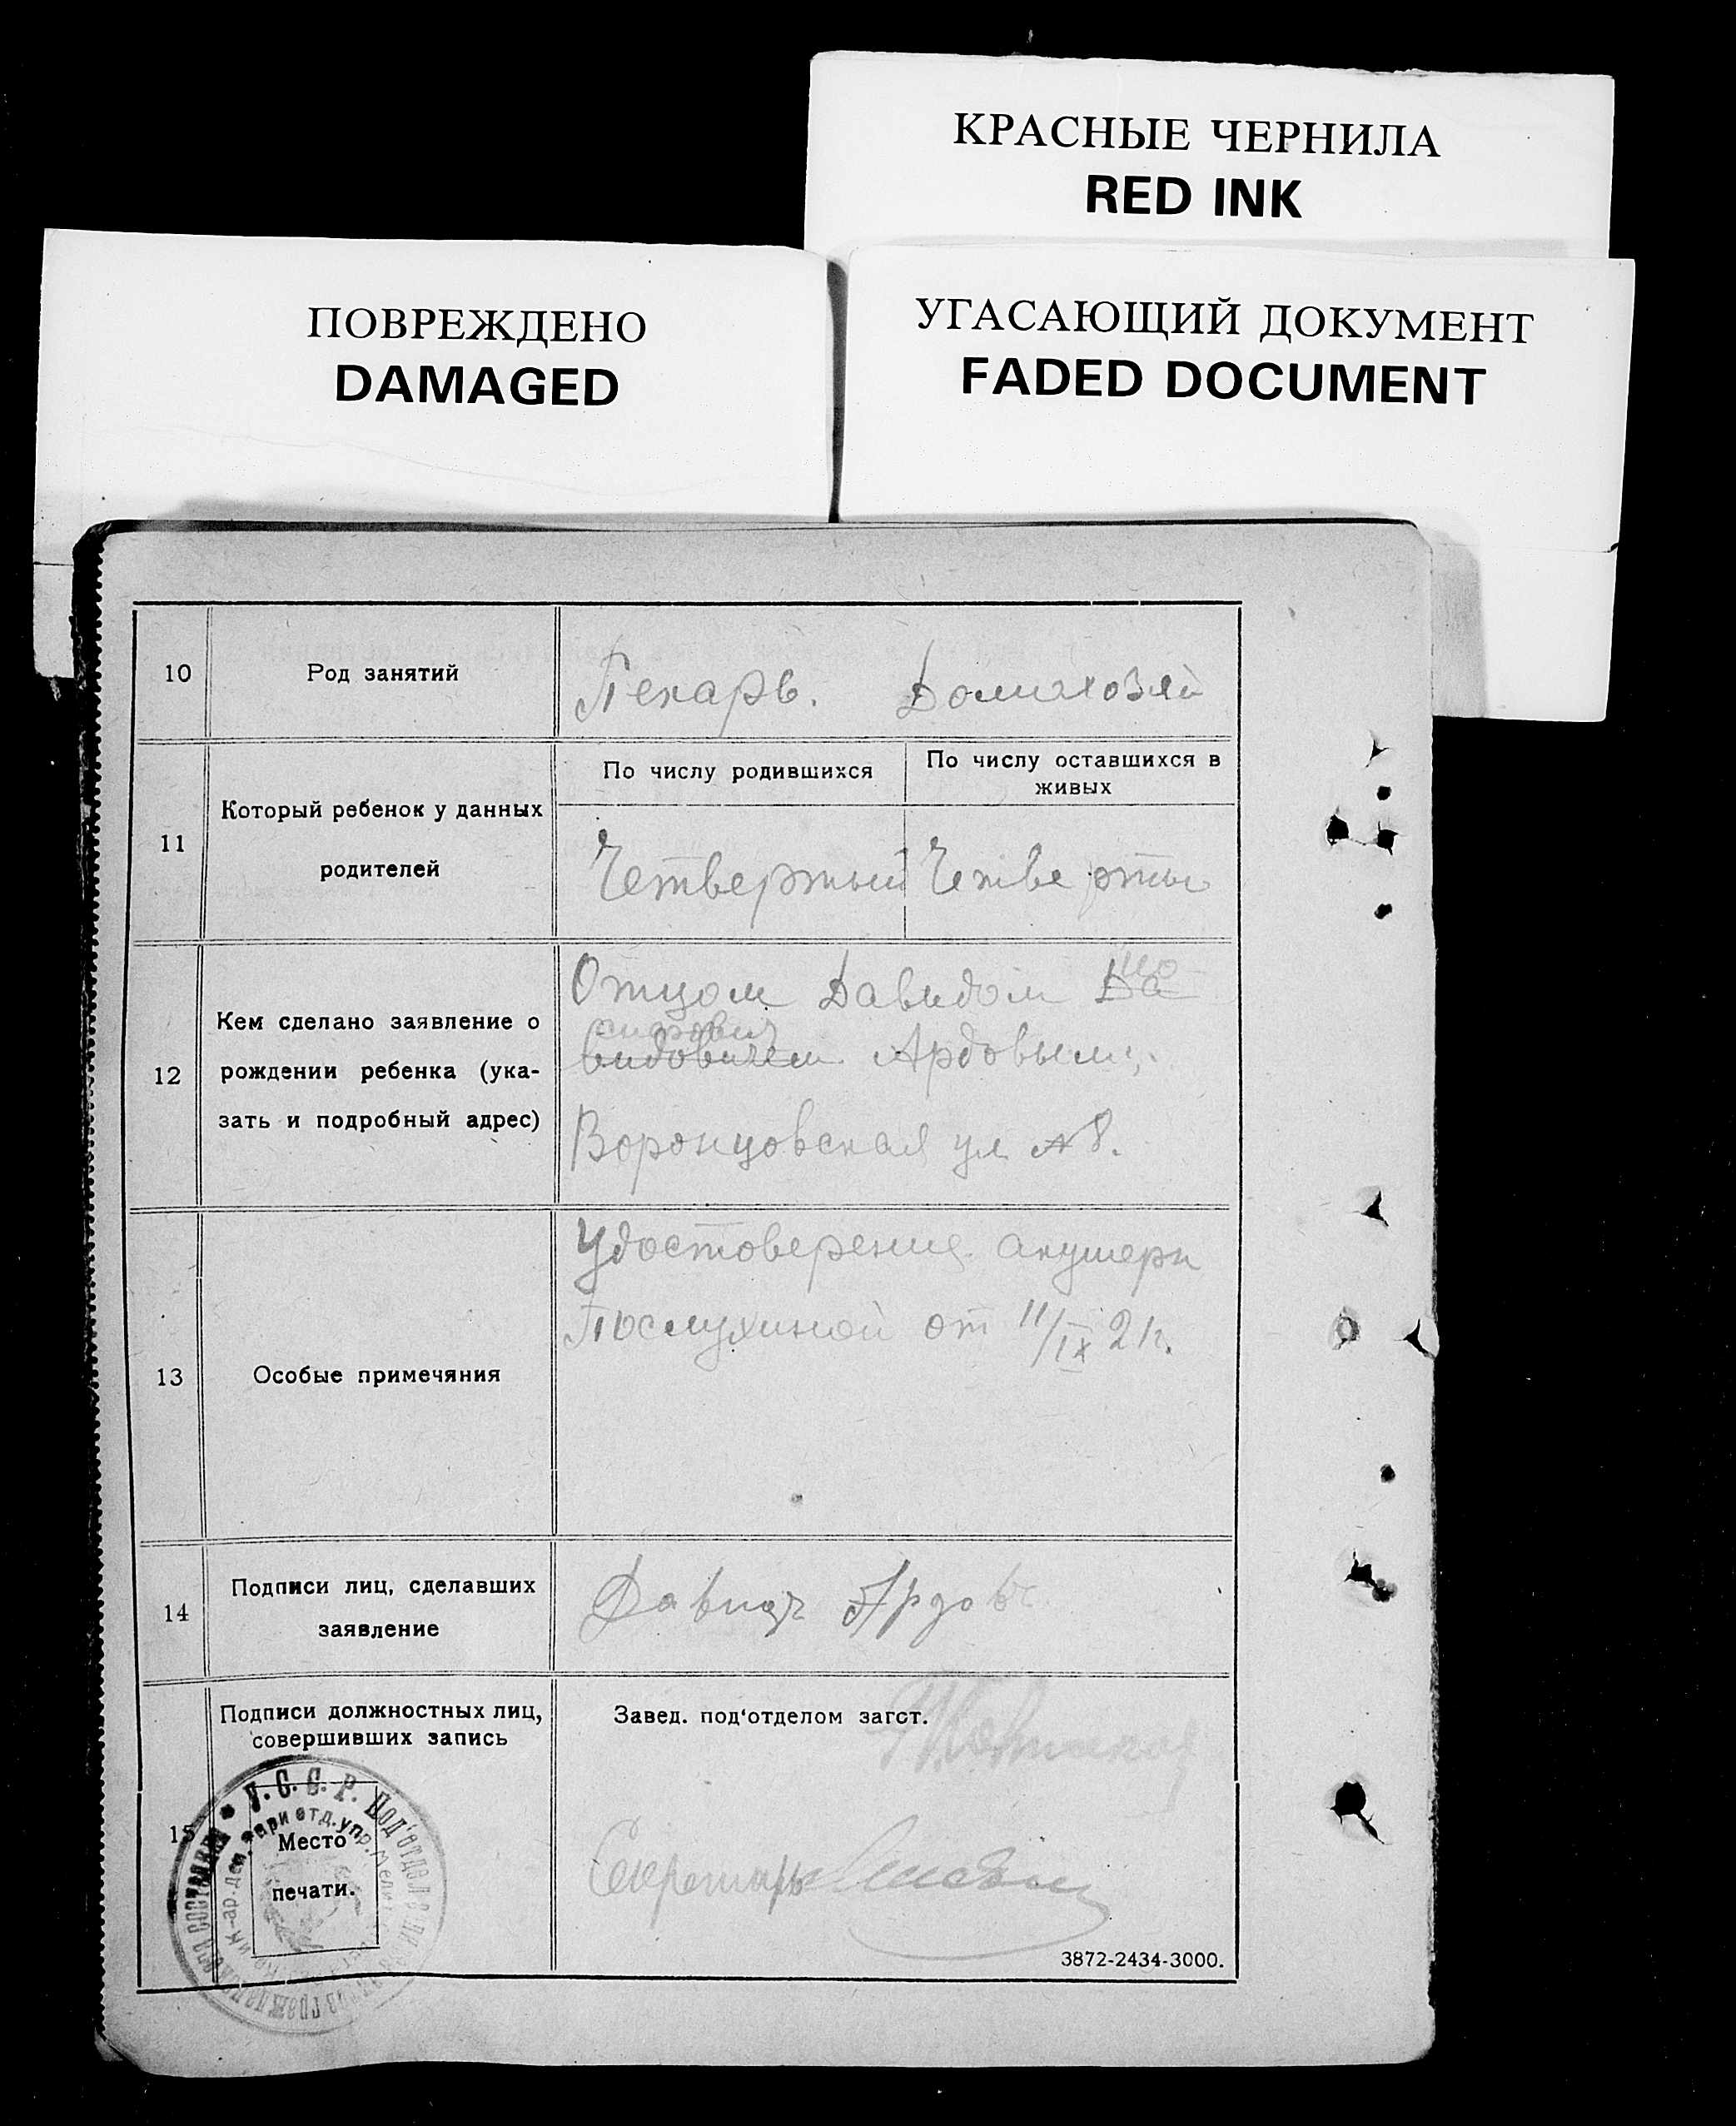 КРАСНЫЕ ЧЕРНИЛА
RED INK
ПОВРЕЖДЕНО
DAMAGED
УГАСАЮЩИЙ ДОКУМЕНТ
FADED DOCUMENT
10
Род занятий
Пекарь. Домихозяй
11
Который ребенок у данных
родителей
По числу родившихся
По числу оставшихся в
живых
Четвертый
Четверты
12
Кем сделано заявление о
рождении ребенка (ука-
зать и подробный адрес)
Отцом Давидом Да
видовичем Ардовым,
Воронцовская ул № 8.
13
Особые примечяния
Удостоверение акушерк
от 11/IX 21г.
14
Подписи лиц, сделавших
заявление
Давид Ардовъ
15
Подписи должностных лиц,
совершивших запись
Место
печати.
У.С.С.Р. Под'отдел
Завед. под'отделом загст.
Секретарь
3872-2434-3000.